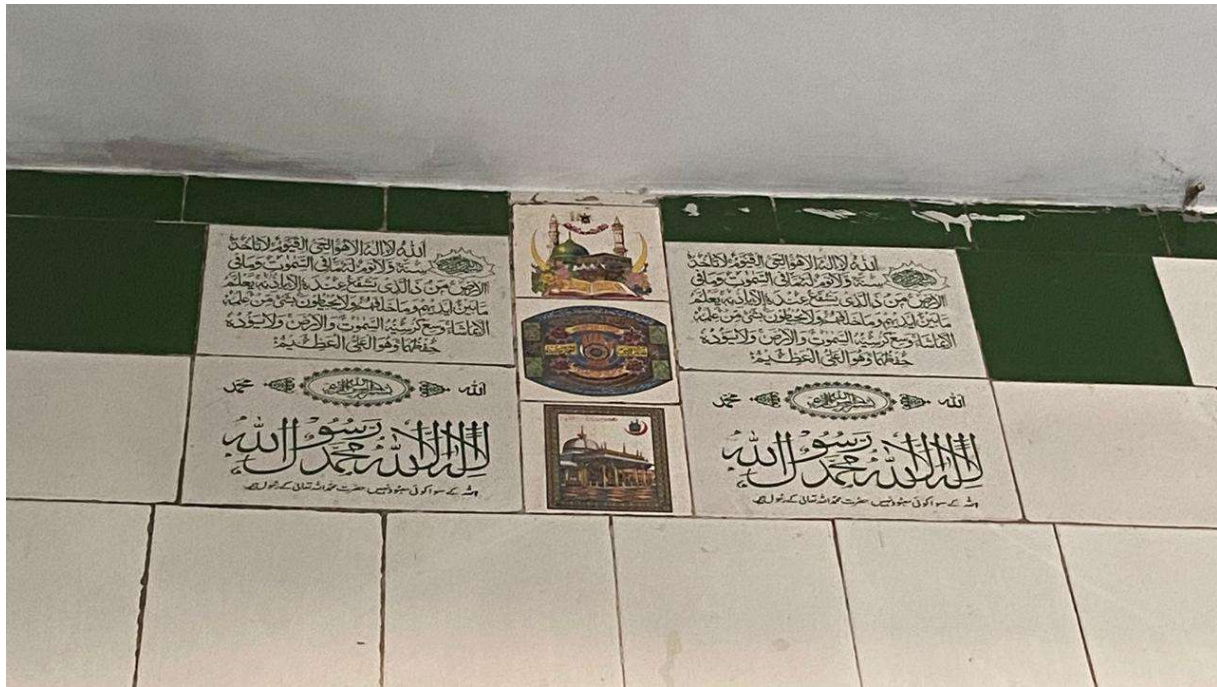 اللهُ لَا اِلٰهَ اِلَّا هُوَ الْحَىُّ الْقَيُّوْمُ لَا تَاْخُذُهٗ
سِنَةٌ وَّلَا نَوْمٌ لَهٗ مَا فِى السَّمٰوٰتِ وَمَا فِى
الْاَرْضِ مَنْ ذَا الَّذِىْ يَشْفَعُ عِنْدَهٗ اِلَّا بِاِذْنِهٖ يَعْلَمُ
مَا بَيْنَ اَيْدِيْهِمْ وَمَا خَلْفَهُمْ وَلَا يُحِيْطُوْنَ بِشَىْءٍ مِّنْ عِلْمِهٖ
اِلَّا بِمَا شَاءَ وَسِعَ كُرْسِيُّهُ السَّمٰوٰتِ وَالْاَرْضَ وَلَا يَئُوْدُهٗ
حِفْظُهُمَا وَهُوَ الْعَلِىُّ الْعَظِيْمُ
الله
بسم الله الرحمن الرحيم
محمد
لا اله الا الله محمد رسول الله
اللہ کے سوا کوئی معبود نہیں حضرت محمد اللہ تعالیٰ کے رسول ہیں
اللهُ لَا اِلٰهَ اِلَّا هُوَ الْحَىُّ الْقَيُّوْمُ لَا تَاْخُذُهٗ
سِنَةٌ وَّلَا نَوْمٌ لَهٗ مَا فِى السَّمٰوٰتِ وَمَا فِى
الْاَرْضِ مَنْ ذَا الَّذِىْ يَشْفَعُ عِنْدَهٗ اِلَّا بِاِذْنِهٖ يَعْلَمُ
مَا بَيْنَ اَيْدِيْهِمْ وَمَا خَلْفَهُمْ وَلَا يُحِيْطُوْنَ بِشَىْءٍ مِّنْ عِلْمِهٖ
اِلَّا بِمَا شَاءَ وَسِعَ كُرْسِيُّهُ السَّمٰوٰتِ وَالْاَرْضَ وَلَا يَئُوْدُهٗ
حِفْظُهُمَا وَهُوَ الْعَلِىُّ الْعَظِيْمُ
الله
بسم الله الرحمن الرحيم
محمد
لا اله الا الله محمد رسول الله
اللہ کے سوا کوئی معبود نہیں حضرت محمد اللہ تعالیٰ کے رسول ہیں